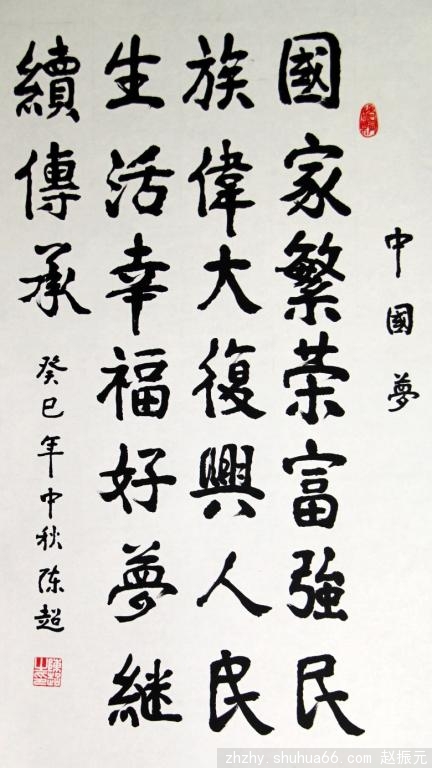 中國夢
國家繁荣富強民
族偉大復興人民
生活幸福好夢继
續傳承
癸巳年中秋陈超
zhzhy.shuhua66.com 赵振元